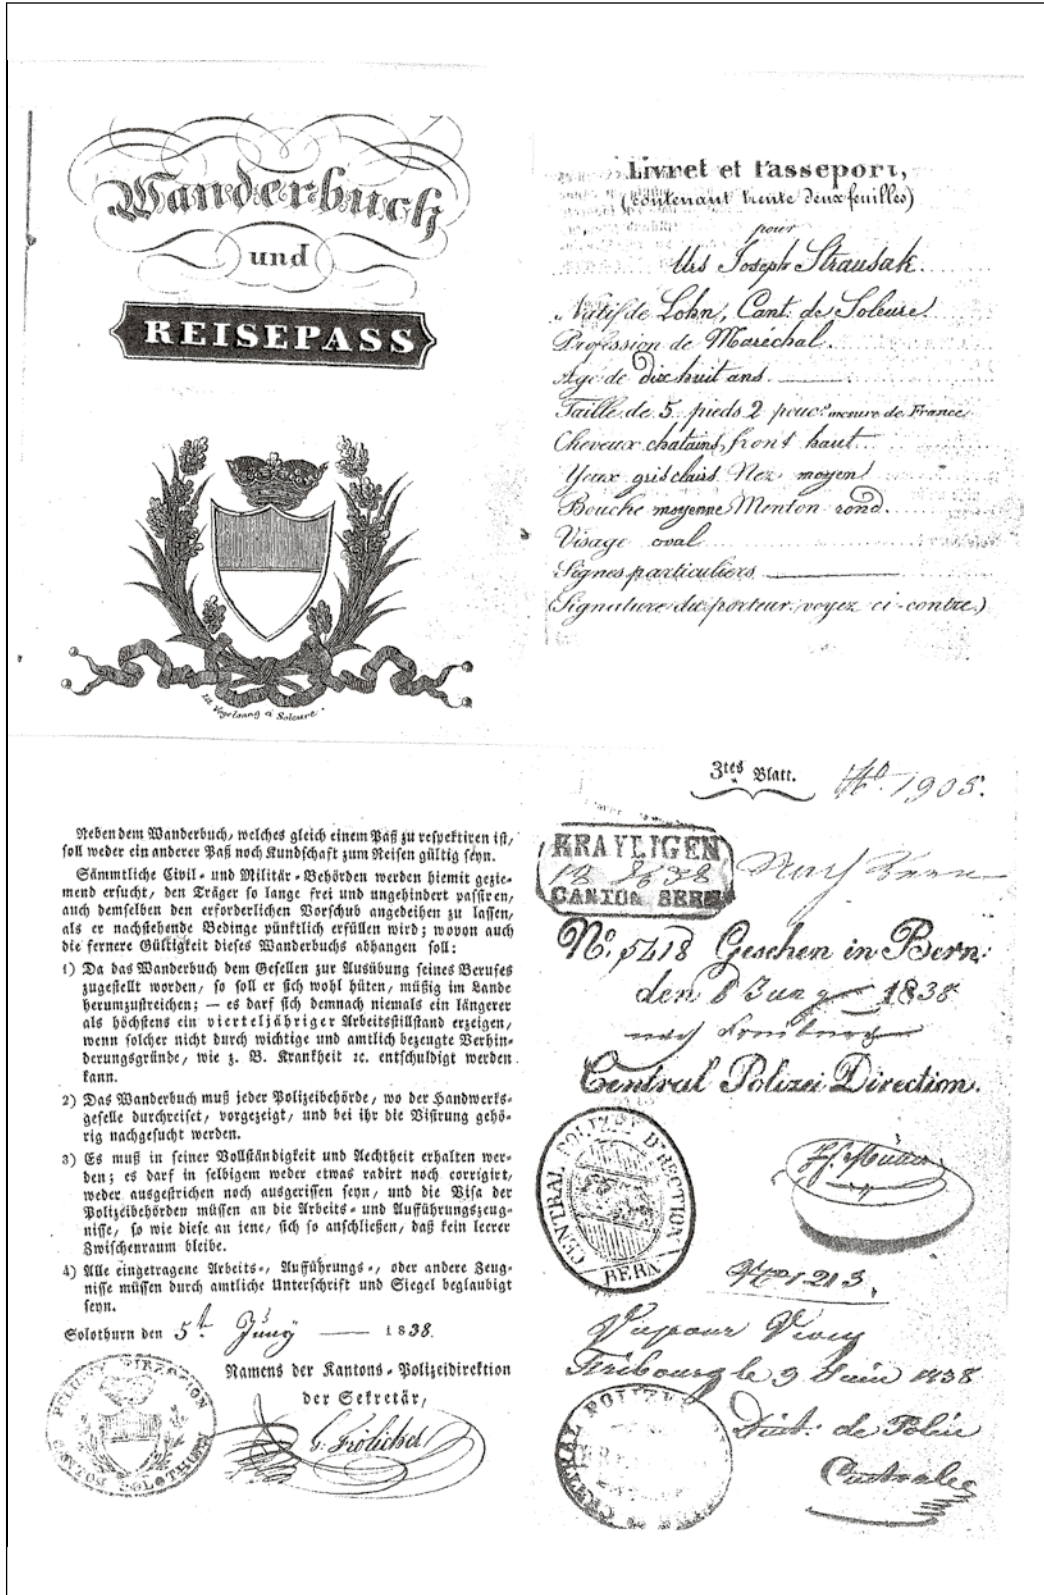 Wanderbuch
und
REISEPASS
Lit. Vogelsang à Soleure.
Livret et Passeport,
(contenant trente deux feuilles)
pour
Urs Joseph Strausak
Natif de Lohn, Cant. de Soleure.
Profession de Maréchal.
Age de dix huit ans.
Taille de 5 pieds 2 pouc.ˢ mesure de France
Cheveux chatains, front haut
Yeux gris clairs Nez moyen
Bouche moyenne Menton rond.
Visage oval
Signes particuliers
(Signature du porteur voyez ci-contre.)
Neben dem Wanderbuch, welches gleich einem Paß zu respektiren ist,
soll weder ein anderer Paß noch Kundschaft zum Reisen gültig seyn.
Sämmtliche Civil- und Militär-Behörden werden hiemit gezie-
mend ersucht, den Träger so lange frei und ungehindert passiren,
auch demselben den erforderlichen Vorschub angedeihen zu lassen,
als er nachstehende Bedinge pünktlich erfüllen wird; wovon auch
die fernere Gültigkeit dieses Wanderbuchs abhangen soll:
1) Da das Wanderbuch dem Gesellen zur Ausübung seines Berufes
zugestellt worden, so soll er sich wohl hüten, müßig im Lande
herumzustreichen; — es darf sich demnach niemals ein längerer
als höchstens ein vierteljähriger Arbeitsstillstand erzeigen,
wenn solcher nicht durch wichtige und amtlich bezeugte Verhin-
derungsgründe, wie z. B. Krankheit ꝛc. entschuldigt werden
kann.
2) Das Wanderbuch muß jeder Polizeibehörde, wo der Handwerks-
geselle durchreiset, vorgezeigt, und bei ihr die Visirung gehö-
rig nachgesucht werden.
3) Es muß in seiner Vollständigkeit und Aechtheit erhalten wer-
den; es darf in selbigem weder etwas radirt noch corrigirt,
weder ausgestrichen noch ausgerissen seyn, und die Visa der
Polizeibehörden müssen an die Arbeits- und Aufführungszeug-
nisse, so wie diese an jene, sich so anschließen, daß kein leerer
Zwischenraum bleibe.
4) Alle eingetragene Arbeits-, Aufführungs-, oder andere Zeug-
nisse müssen durch amtliche Unterschrift und Siegel beglaubigt
seyn.
Solothurn den 5.ᵗ Junÿ — 1838.
Namens der Kantons-Polizeidirektion
der Sekretär,
POLIZEY DIREKTION
CANTON SOLOTHURN
3tes Blatt. N.º 1905.
KRAYLIGEN
CANTON BERN
Nach Bern
N.º 5418 Gesehen in Bern:
den 8 Juny 1838
nach Freiburg
Central Polizei Direction.
CENTRAL POLIZEY DIRECTION
BERN
N.º 1213.
Vu pour Vevey
Fribourg le 9 Juin 1838
Direct. de Police
Centrale
CENTRAL POLIZEY